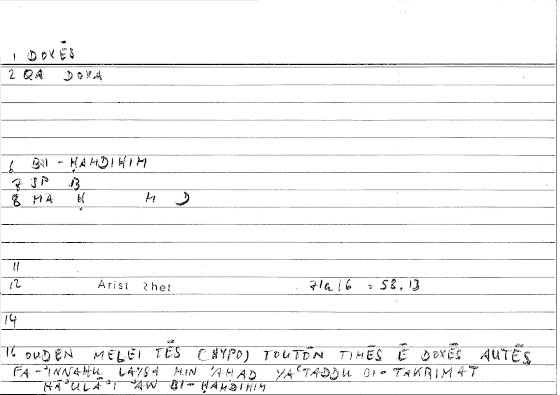 1 DOXĒS
2 QA DOXA
6 BI-ḤAMDIHIM
7 SP B
8 MA Ḥ M D
11
12 Arist Rhet 71a16 = 58.13
14
16 OUDEN MELEI TĒS (HYPO) TOUTŌN TIMĒS Ē DOXĒS AUTĒS
FA-'INNAHU LAYSA MIN 'AḤAD YA'TADDU BI-TAKRIMAT
HĀ'ULĀ'I 'AW BI-ḤAMDIHIM